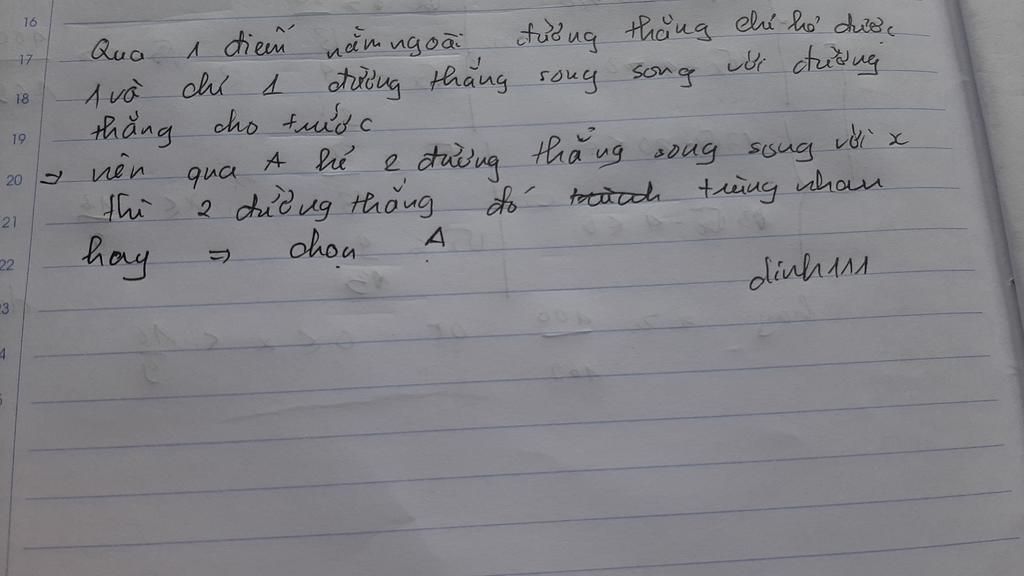 16
17 Qua 1 điểm nằm ngoài đường thẳng chỉ kẻ được
18 1 và chỉ 1 đường thẳng song song với đường
19 thẳng cho trước
20 => nên qua A kẻ 2 đường thẳng song song với x
21 thì 2 đường thẳng đó trùng nhau
22 hay => chọn A
dinh111
3
4